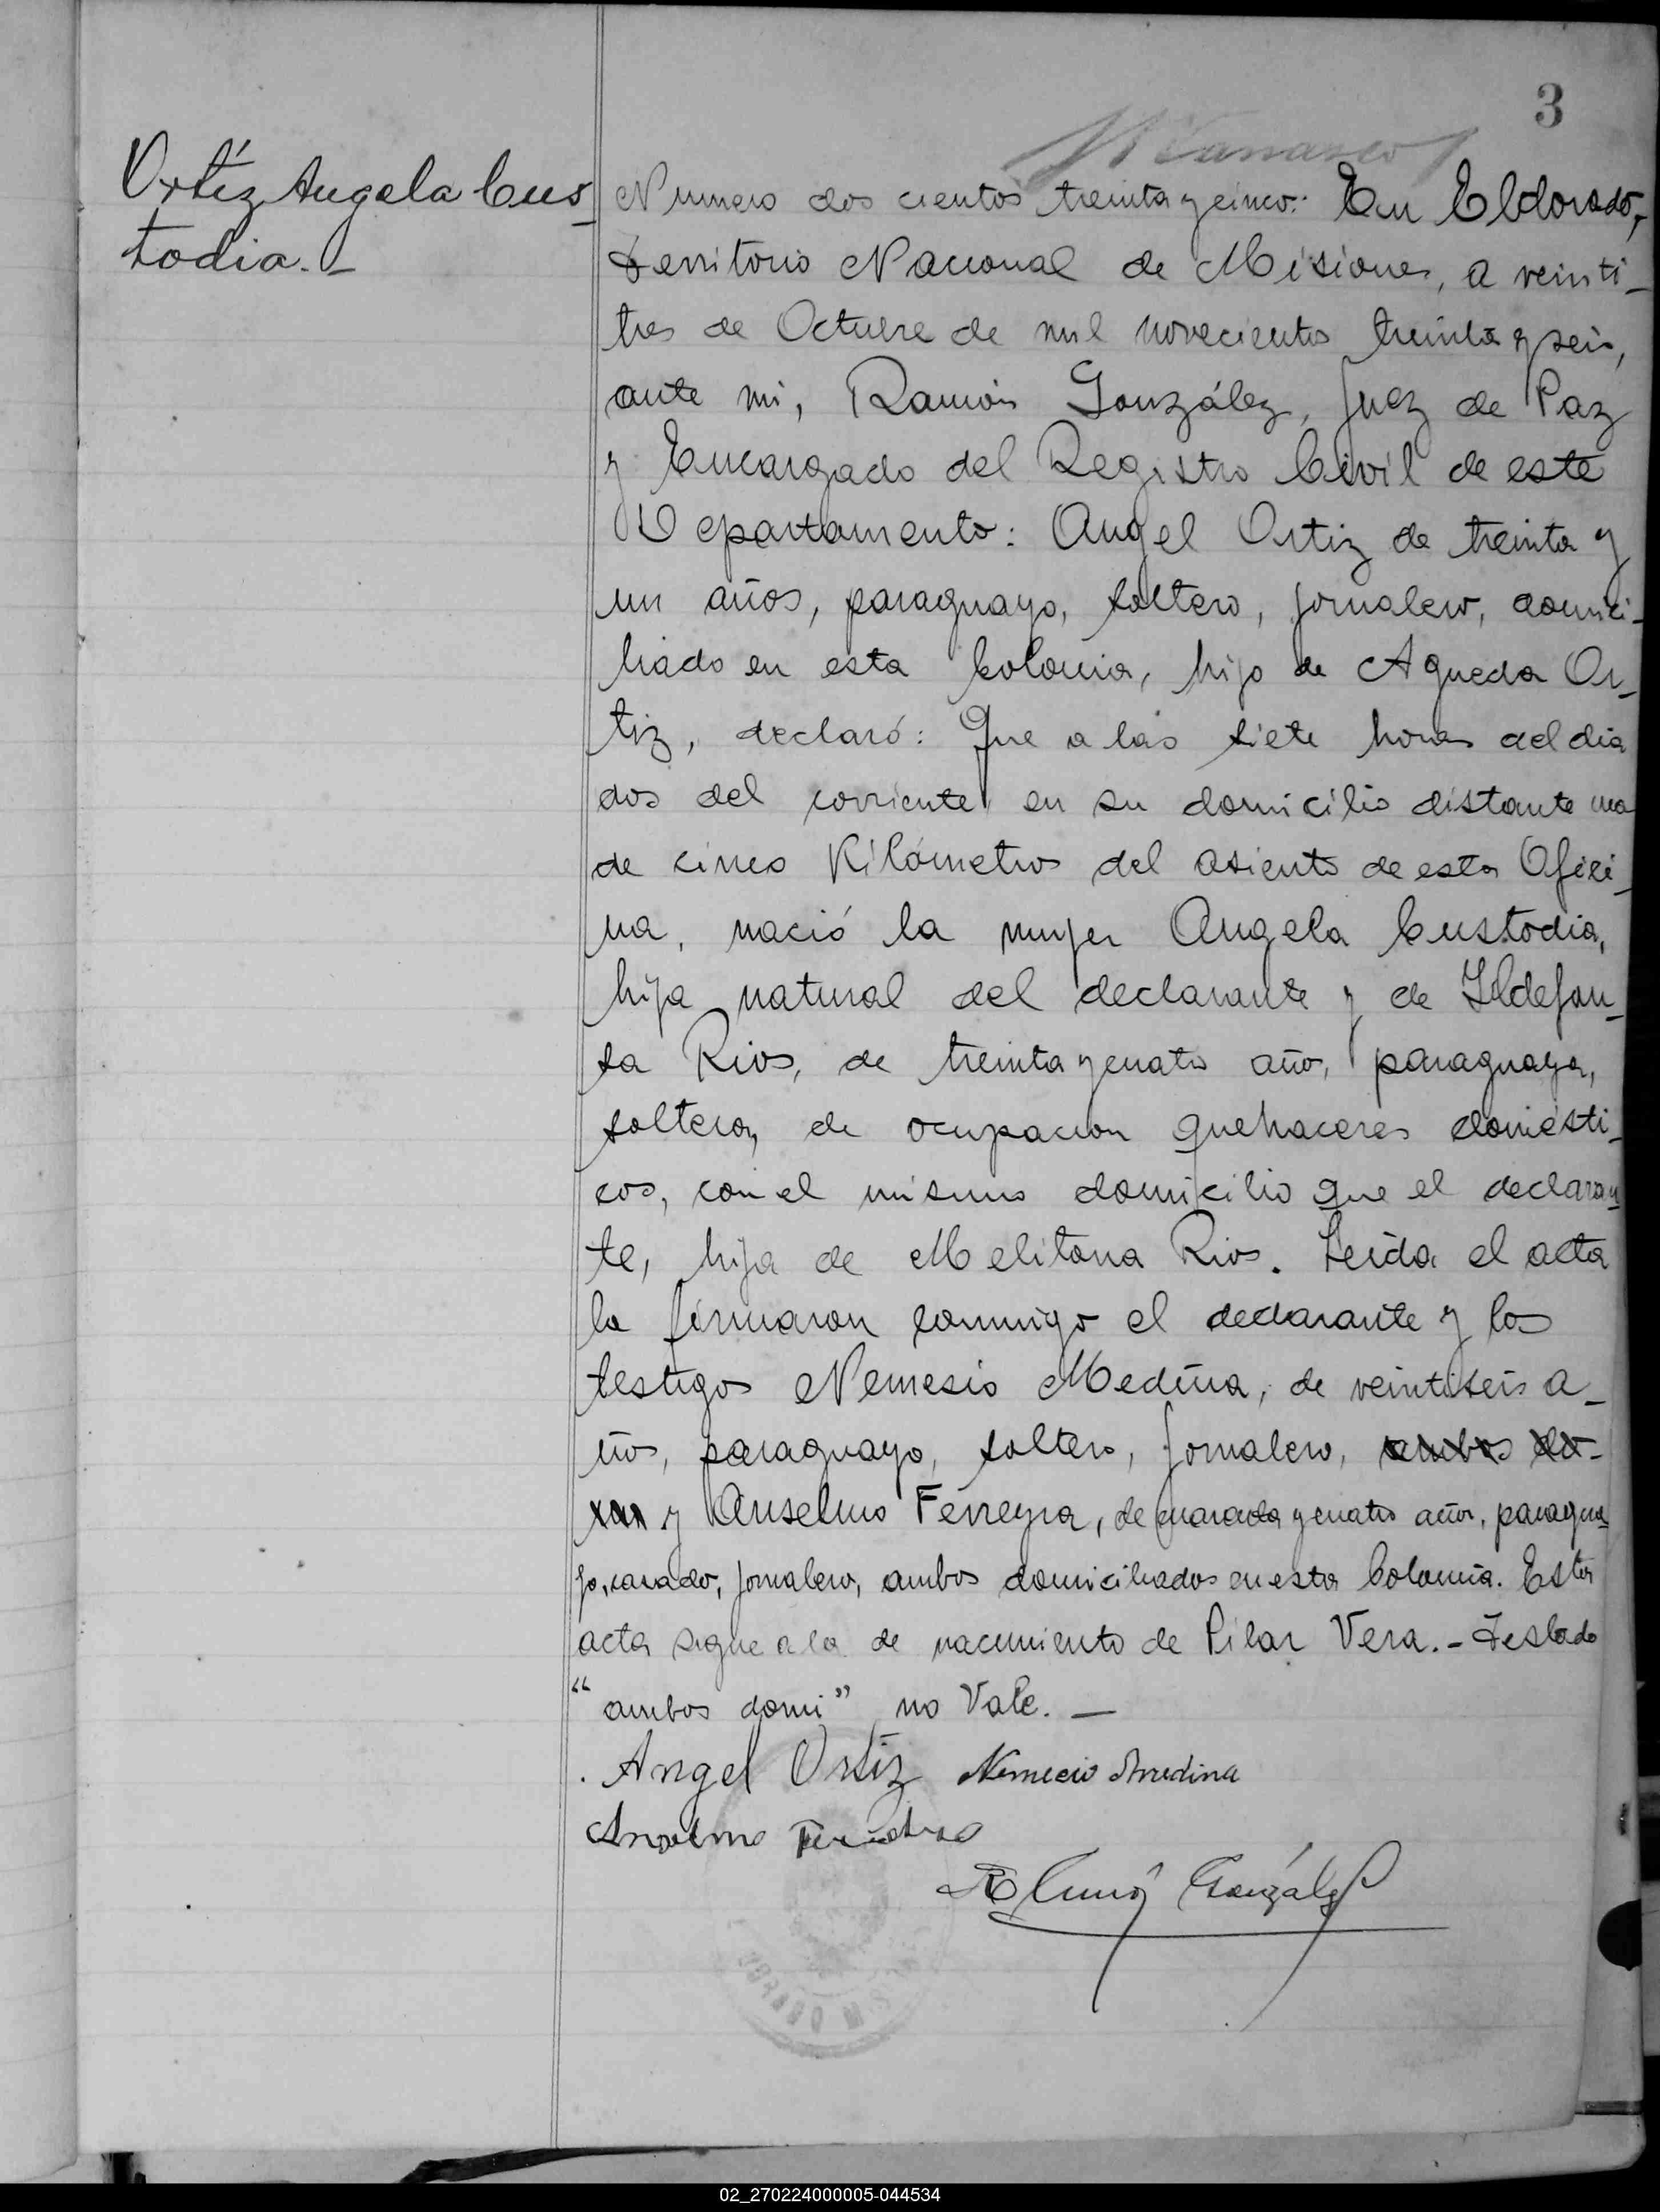 3
Ortíz Angela Cus-
todia.-
Numero dos cientos treinta y cinco: En Eldorado,
Territorio Nacional de Misiones, a veinti-
tres de Octubre de mil novecientos treinta y seis,
ante mi, Ramón González, Juez de Paz
y Encargado del Registro Civil de este
Departamento: Angel Ortiz de treinta y
un años, paraguayo, soltero, jornalero, domici-
liado en esta Colonia, hijo de Agueda Or-
tiz, declaró: Que a las siete horas del dia
dos del corriente en su domicilio distante mas
de cinco Kilómetros del asiento de esta Ofici-
na, nació la mujer Angela Custodia,
hija natural del declarante y de Ildefon-
sa Rios, de treinta y cuatro años, paraguaya,
soltera, de ocupacion quehaceres domésti-
cos, con el mismo domicilio que el declaran-
te, hija de Melitona Rios. Leida el acta
la firmaron conmigo el declarante y los
testigos Nemesio Medina, de veintiseis a-
ños, paraguayo, soltero, jornalero, ambos do-
y Anselmo Ferreyra, de cuarenta y cuatro años, paragua-
yo, casado, jornalero, ambos domiciliados en esta Colonia. Esta
acta sigue a la de nacimiento de Pilar Vera.- Testado
"ambos domi" no Vale. —
Angel Ortiz Nemecio Medina
Anselmo
Ramón González
02_270224000005-044534